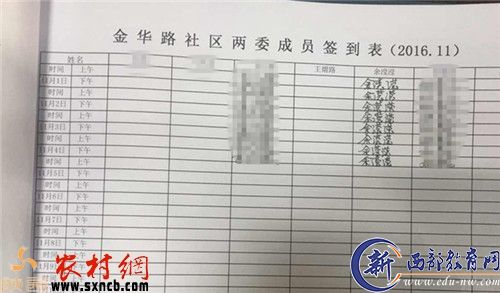 金华路社区两委成员签到表(2016.11)
姓名 王熠路 余滢滢
时间 上午
11月1日 下午 余滢滢
时间 上午 余滢滢
11月2日 下午 余滢滢
时间 上午 余滢滢
11月3日 下午 余滢滢
时间 上午 余滢滢
11月4日 下午 余滢滢
时间 上午 余滢滢
11月5日 下午
时间 上午
11月6日 下午
时间 上午
11月7日 下午
时间 上午
11月8日 下午
时间 上午
下午
农村網
www.sxncb.com
新 西部教育网
www.edu-nw.com